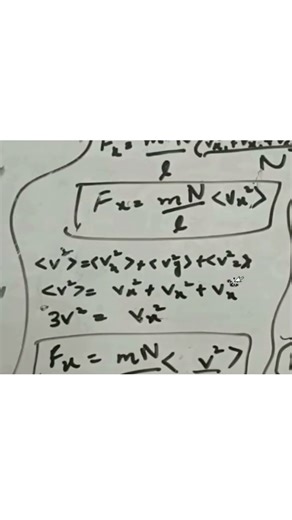 Fx = m N (Vx₁+Vx₂+V
l N
Fx = mN/l <Vx²>
<v²> = <Vx²> + <Vy²> + <V²z>
<v²> = Vx² + Vx² + Vx²
3v² = Vx²
Fx = mN < v² >